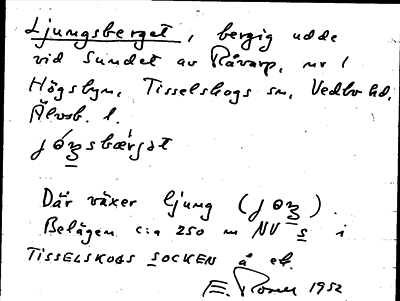 Ljungsberget, bergig udde
vid Sundet av Råvarp, nr 1
Högsbyn, Tisselskogs sn, Vedbo hd,
Älvsb. l.
Där växer ljung
Belägen c:a 250 m NV s i
TISSELSKOGS SOCKEN å ek.
E. 1952